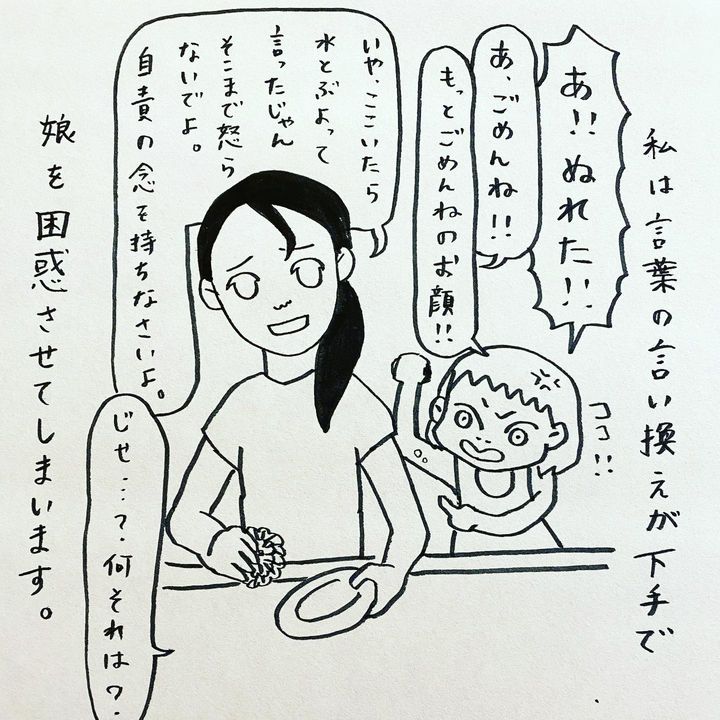 私は言葉の言い換えが下手で
あ!!ぬれた!!
ココ!!
あ、ごめんね!!
もっとごめんねのお顔!!
いや、ここいたら
水とぶよって
言ったじゃん
そこまで怒ら
ないでよ。
自責の念を持ちなさいよ。
じせ…?.何それは?.
娘を困惑させてしまいます。